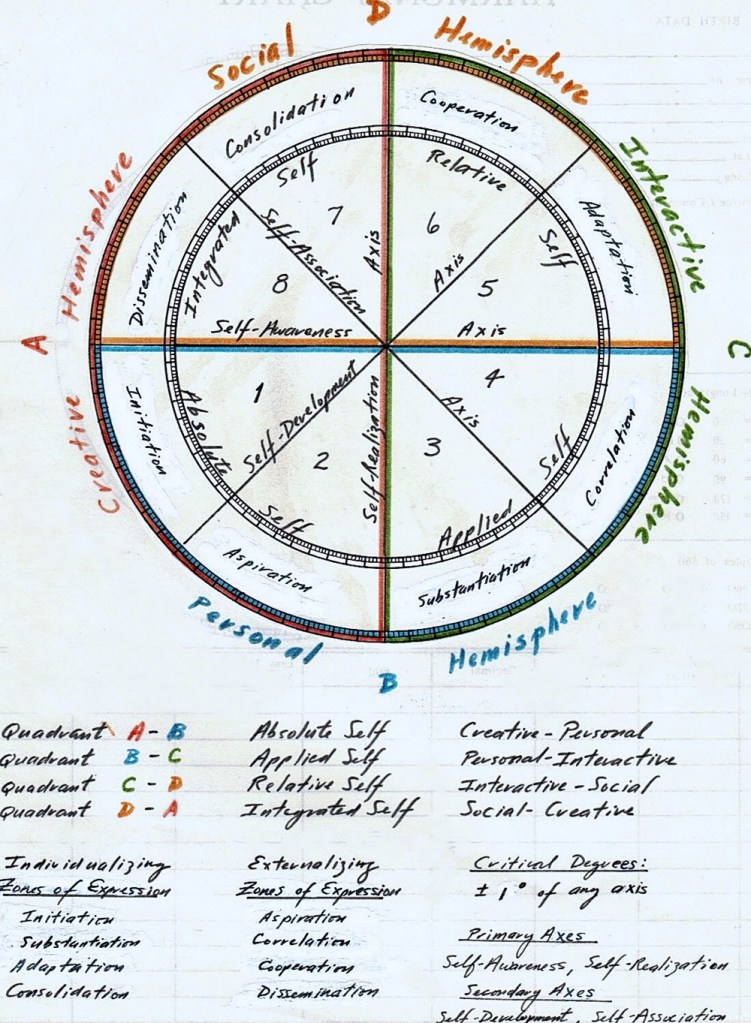 HARMONIC CHART
BIRTH DATA
D
Social
Hemisphere
Consolidation
Cooperation
Hemisphere
Interactive
Self
Relative
Dissemination
Integrated
Self-Association
7
Axis
6
Axis
Self
Adaptation
8
5
Self-Awareness
Axis
A
C
1
4
Creative
Initiation
Absolute
Self-Development
Self-Realization
Axis
Self
Correlation
Hemisphere
2
3
Self
Applied
Aspiration
Substantiation
Personal
Hemisphere
B
Quadrant A - B Absolute Self Creative-Personal
Quadrant B - C Applied Self Personal-Interactive
Quadrant C - D Relative Self Interactive-Social
Quadrant D - A Integrated Self Social-Creative
Individualizing Externalizing Critical Degrees:
Zones of Expression Zones of Expression ± 1° of any axis
Initiation Aspiration
Substantiation Correlation Primary Axes
Adaptation Cooperation Self-Awareness, Self-Realization
Consolidation Dissemination Secondary Axes
Self-Development, Self-Association